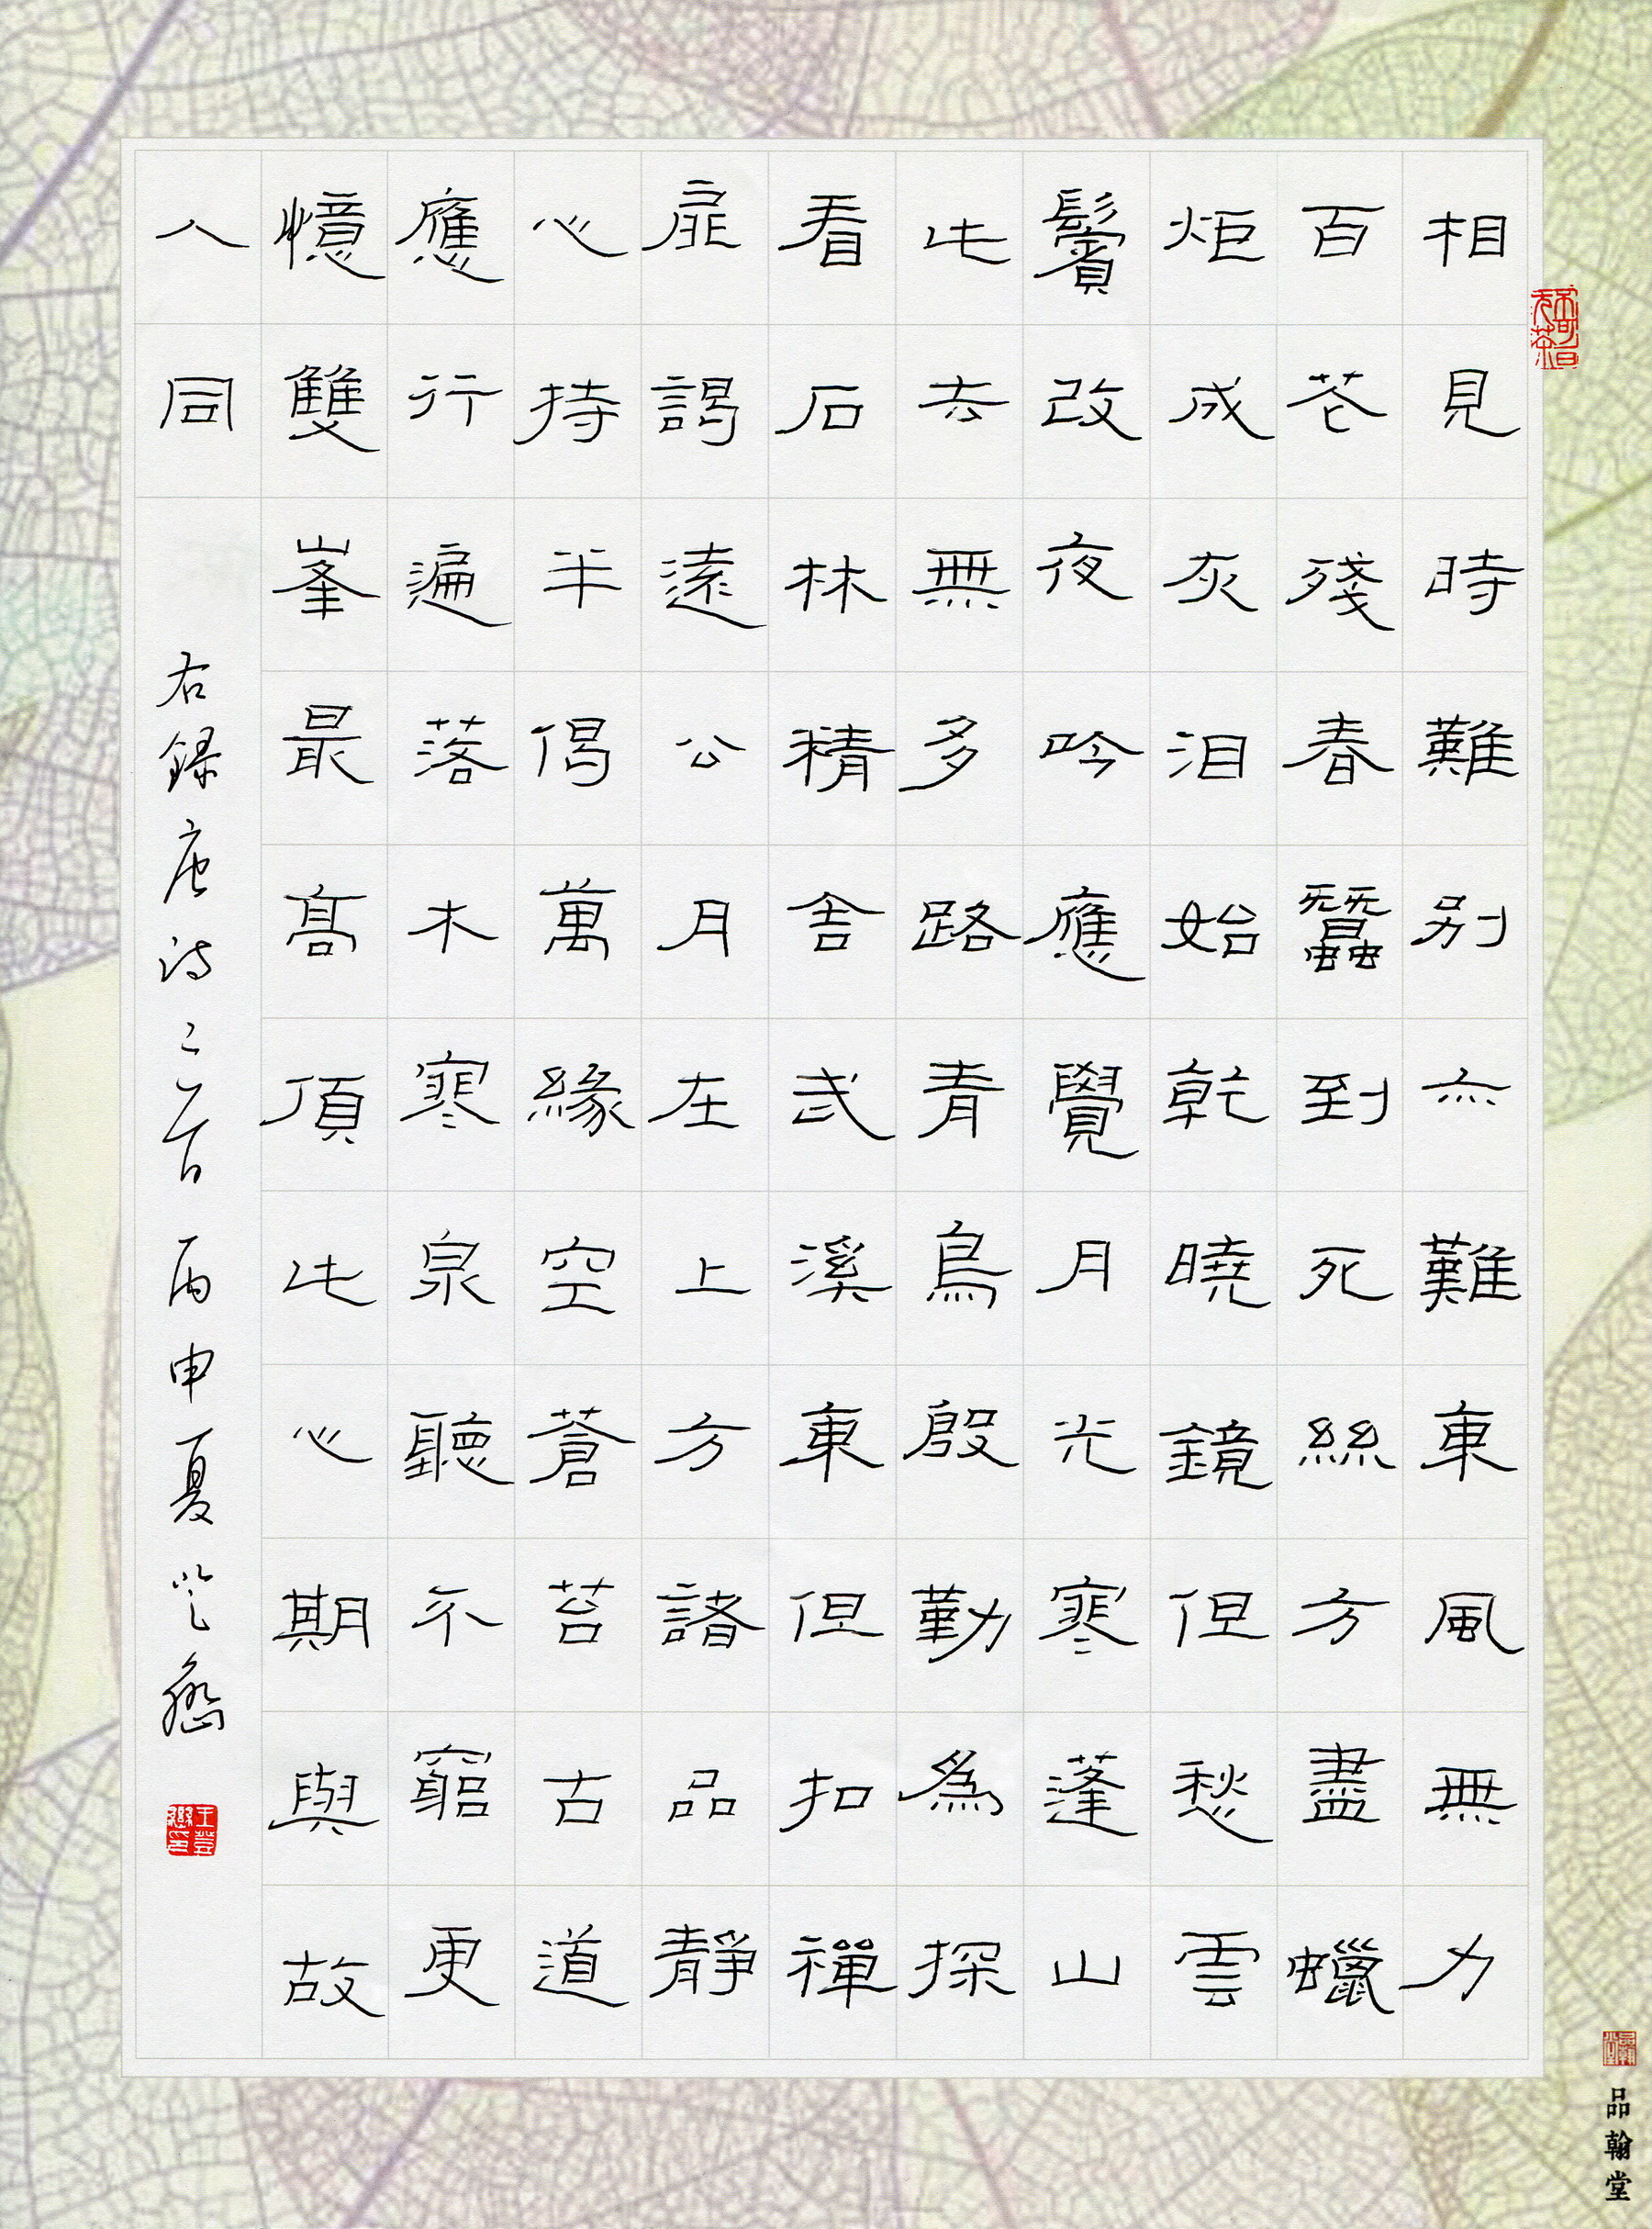 相見時難別亦難東風無力
百花殘春蠶到死絲方盡蠟
炬成灰泪始乾曉鏡但愁雲
鬢改夜吟應覺月光寒蓬山
此去無多路青鳥殷勤為探
看石林精舍武溪東但扣禪
扉謁遠公月在上方諸品靜
心持半偈萬緣空蒼苔古道
應行遍落木寒泉聽不窮更
憶雙峯最高頂此心期與故
人同
右録唐詩二首丙申夏登
品翰堂